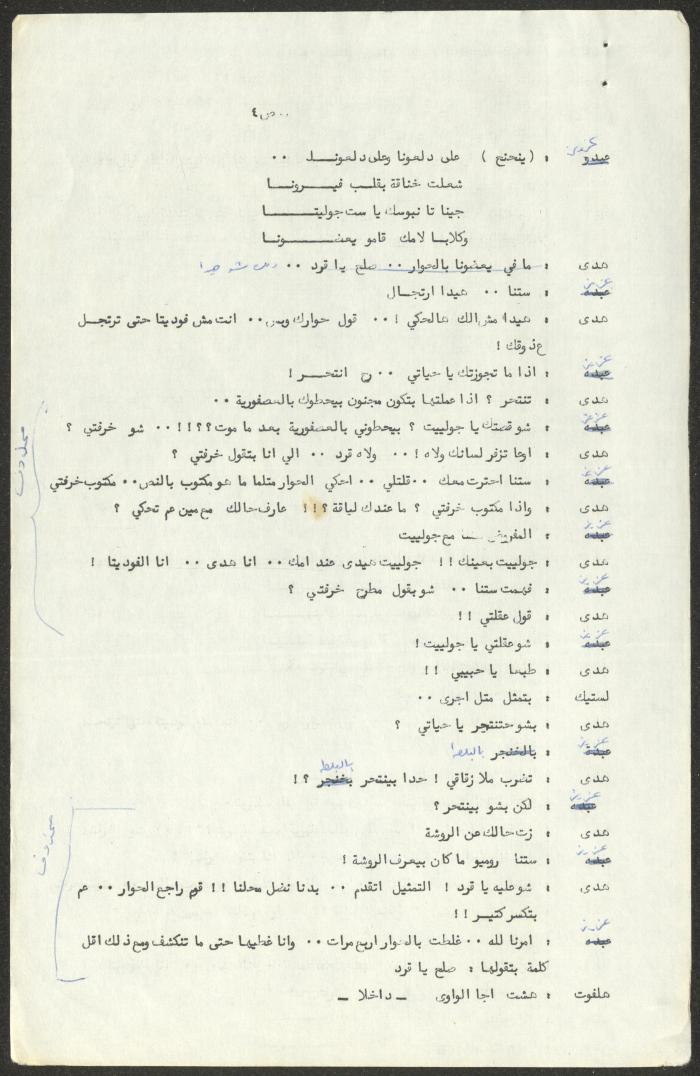 ..ص٤
عزيز
عبدو : ( ينحنح ) على دلعونا وعلى دلعونــا ..
شعلت خناقة بقلــب فيــرونــا
جينا تا نبوسك يا ست جولييتــا
وكلابــا لامك قامو يعضــونــا
هدى : ما في يعضونا بالحوار .. صلح يا قرد ..
عزيز عبده : ستنا .. هيدا ارتجــال
هدى : هيدا مش الك هالحكي ! .. قول حوارك وبس .. انت مش فوديتا حتى ترتجــل
ع ذوقك !
عزيز عبده : اذا ما تجوزتك يا حياتي .. رح انتحــر !
هدى : تنتحر ؟ اذا عملتها بتكون مجنون بيحطوك بالعصفورية ..
عزيز عبده : شو قصتك يا جولييت ؟ بيحطوني بالعصفورية بعد ما موت ؟؟!! .. شو خرفتي ؟
هدى : اوعا تزفر لسانك ولاه ! .. ولاه قرد .. الي انا بتقول خرفتي ؟
عزيز عبده : ستنا احترت معك .. قلتلي .. احكي الحوار متلما ما هو مكتوب بالنص .. مكتوب خرفتي
هدى : واذا مكتوب خرفتي ؟ ما عندك لياقة ؟!! عارف حالك مع مين عم تحكي ؟
عزيز عبده : المفروض مع جولييت
هدى : جولييت بعينك !! جولييت هيدي عند امك .. انا هدى .. انا الفوديتا !
عزيز عبده : فهمت ستنا .. شو بقول مطرح خرفتي ؟
هدى : قول عقلتي !!
عزيز عبده : شو عقلتي يا جولييت !
هدى : طبعا يا حبيبي !!
لستيك : بتمثل متل اجرى ..
هدى : بشو حتنتحر يا حياتي ؟
عزيز عبدة : بالخنجر بالبلطا
هدى : تضرب ملا زقاقي ! حدا بينتحر بخنجر بالبلطا ؟!
عزيز عبده : لكن بشو بينتحر ؟
هدى : زت حالك عن الروشة
عزيز عبده : ستنا روميو ما كان بيعرف الروشة !
هدى : شو عليه يا قرد ! التمثيل اتقدم .. بدنا نضل محلنا !! قوم راجع الحوار .. عم
بتكسر كتيــر !!
عزيز عبده : امرنا لله .. غلطت بالحوار اربع مرات .. وانا غطيها حتى ما تنكشف ومع ذلك اقل
كلمة بتقولها : صلح يا قرد
هلفوت : هشت اجا الواوى – داخلا –
محذوف
محذوف